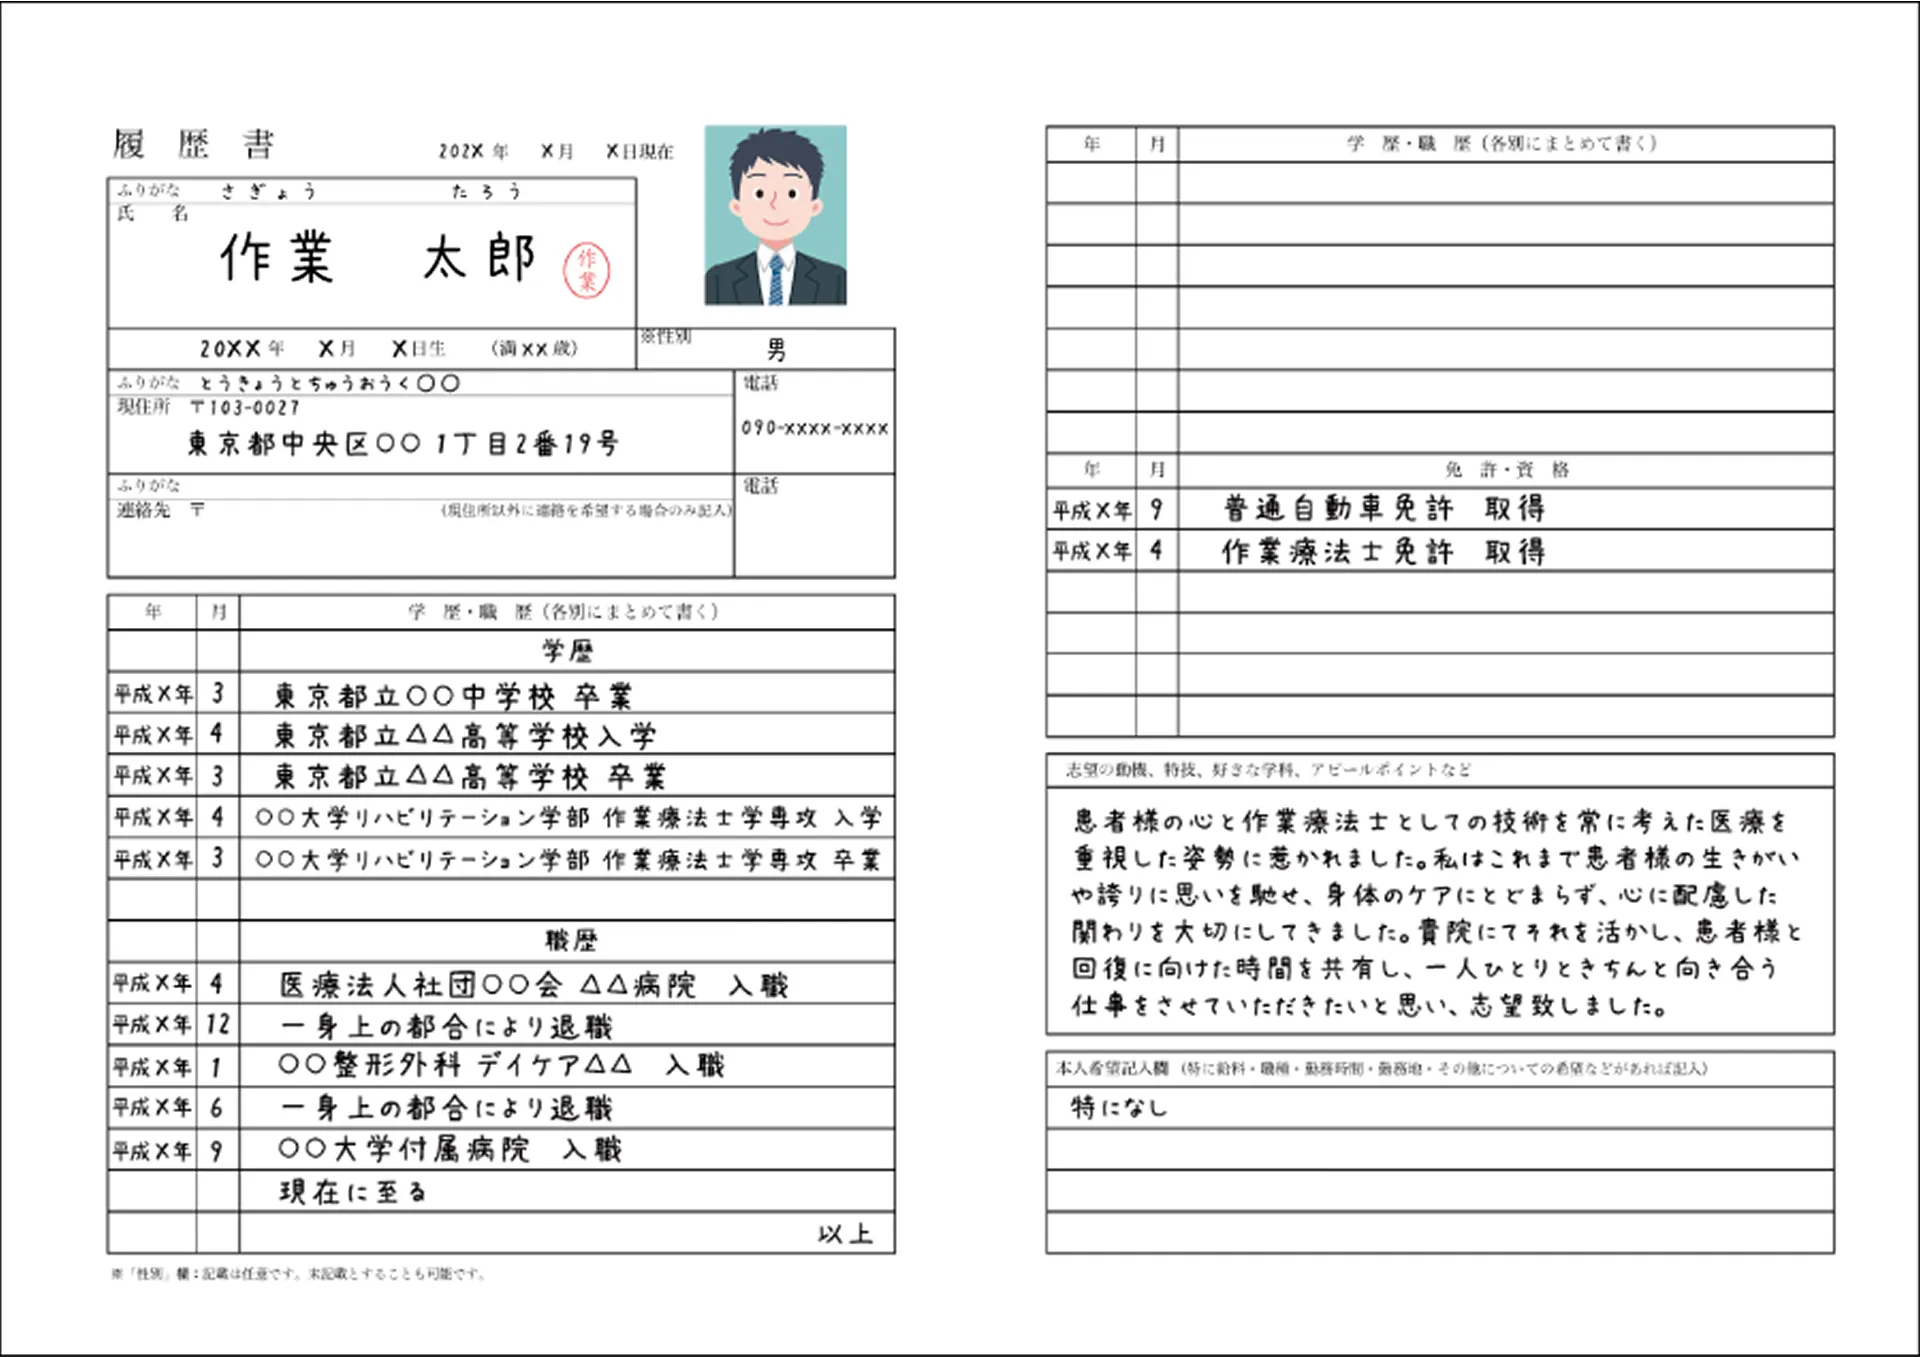 履歴書
202X 年 X月 X日現在
ふりがな さぎょう たろう
氏 名
作業 太郎
作業
20XX年 X月 X日生 (満xx歳)
※性別
男
ふりがな とうきょうとちゅうおうく〇〇
現住所 〒103-0027
東京都中央区〇〇 1丁目2番19号
電話
090-xxxx-xxxx
ふりがな
連絡先 〒 (現住所以外に連絡を希望する場合のみ記入)
電話
年 月 学 歴・職 歴(各別にまとめて書く)
学歴
平成X年 3 東京都立〇〇中学校 卒業
平成X年 4 東京都立△△高等学校入学
平成X年 3 東京都立△△高等学校 卒業
平成X年 4 〇〇大学リハビリテーション学部 作業療法士学専攻 入学
平成X年 3 〇〇大学リハビリテーション学部 作業療法士学専攻 卒業
職歴
平成X年 4 医療法人社団〇〇会 △△病院 入職
平成X年 12 一身上の都合により退職
平成X年 1 〇〇整形外科 デイケア△△ 入職
平成X年 6 一身上の都合により退職
平成X年 9 〇〇大学付属病院 入職
現在に至る
以上
※「性別」欄:記載は任意です。未記載とすることも可能です。
年 月 学 歴・職 歴(各別にまとめて書く)
年 月 免 許・資 格
平成X年 9 普通自動車免許 取得
平成X年 4 作業療法士免許 取得
志望の動機、特技、好きな学科、アピールポイントなど
患者様の心と作業療法士としての技術を常に考えた医療を
重視した姿勢に惹かれました。私はこれまで患者様の生きがい
や誇りに思いを馳せ、身体のケアにとどまらず、心に配慮した
関わりを大切にしてきました。貴院にてそれを活かし、患者様と
回復に向けた時間を共有し、一人ひとりときちんと向き合う
仕事をさせていただきたいと思い、志望致しました。
本人希望記入欄 (特に給料・職種・勤務時間・勤務地・その他についての希望などがあれば記入)
特になし